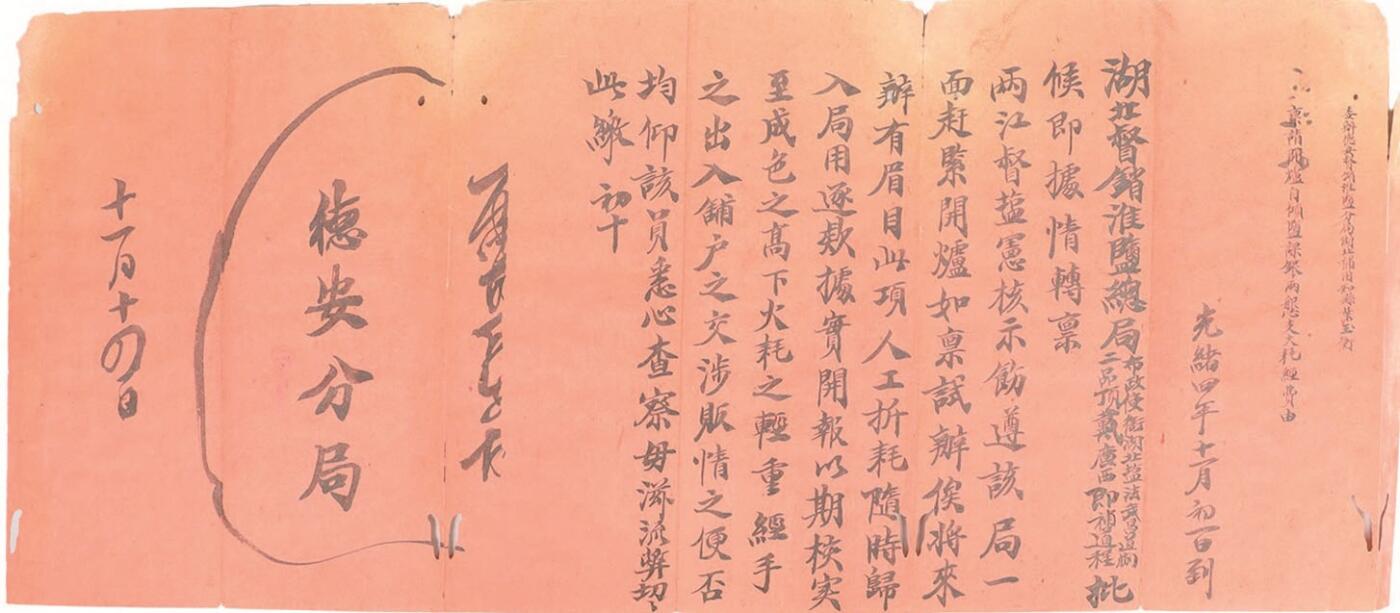 委辦德安督銷淮鹽分局湖北補用知縣葉玉
稟請開爐自傾鹽課銀兩懇支火耗經費由
光緒四年十一月初一日到
湖北督銷淮鹽總局布政使銜湖北鹽法武昌道
二品頂戴廣西即補道程批
候即據情轉稟
兩江督鹽憲核示飭遵該局一
面赶緊開爐如稟試辦俟將來
辦有眉目此項人工折耗隨時歸
入局用逐款據實開報以期核实
至成色之高下火耗之輕重經手
之出入鋪户之交涉販情之便否
均仰該員悉心查察毋滋流弊切切
此繳 初十
德安分局
十一月十四日